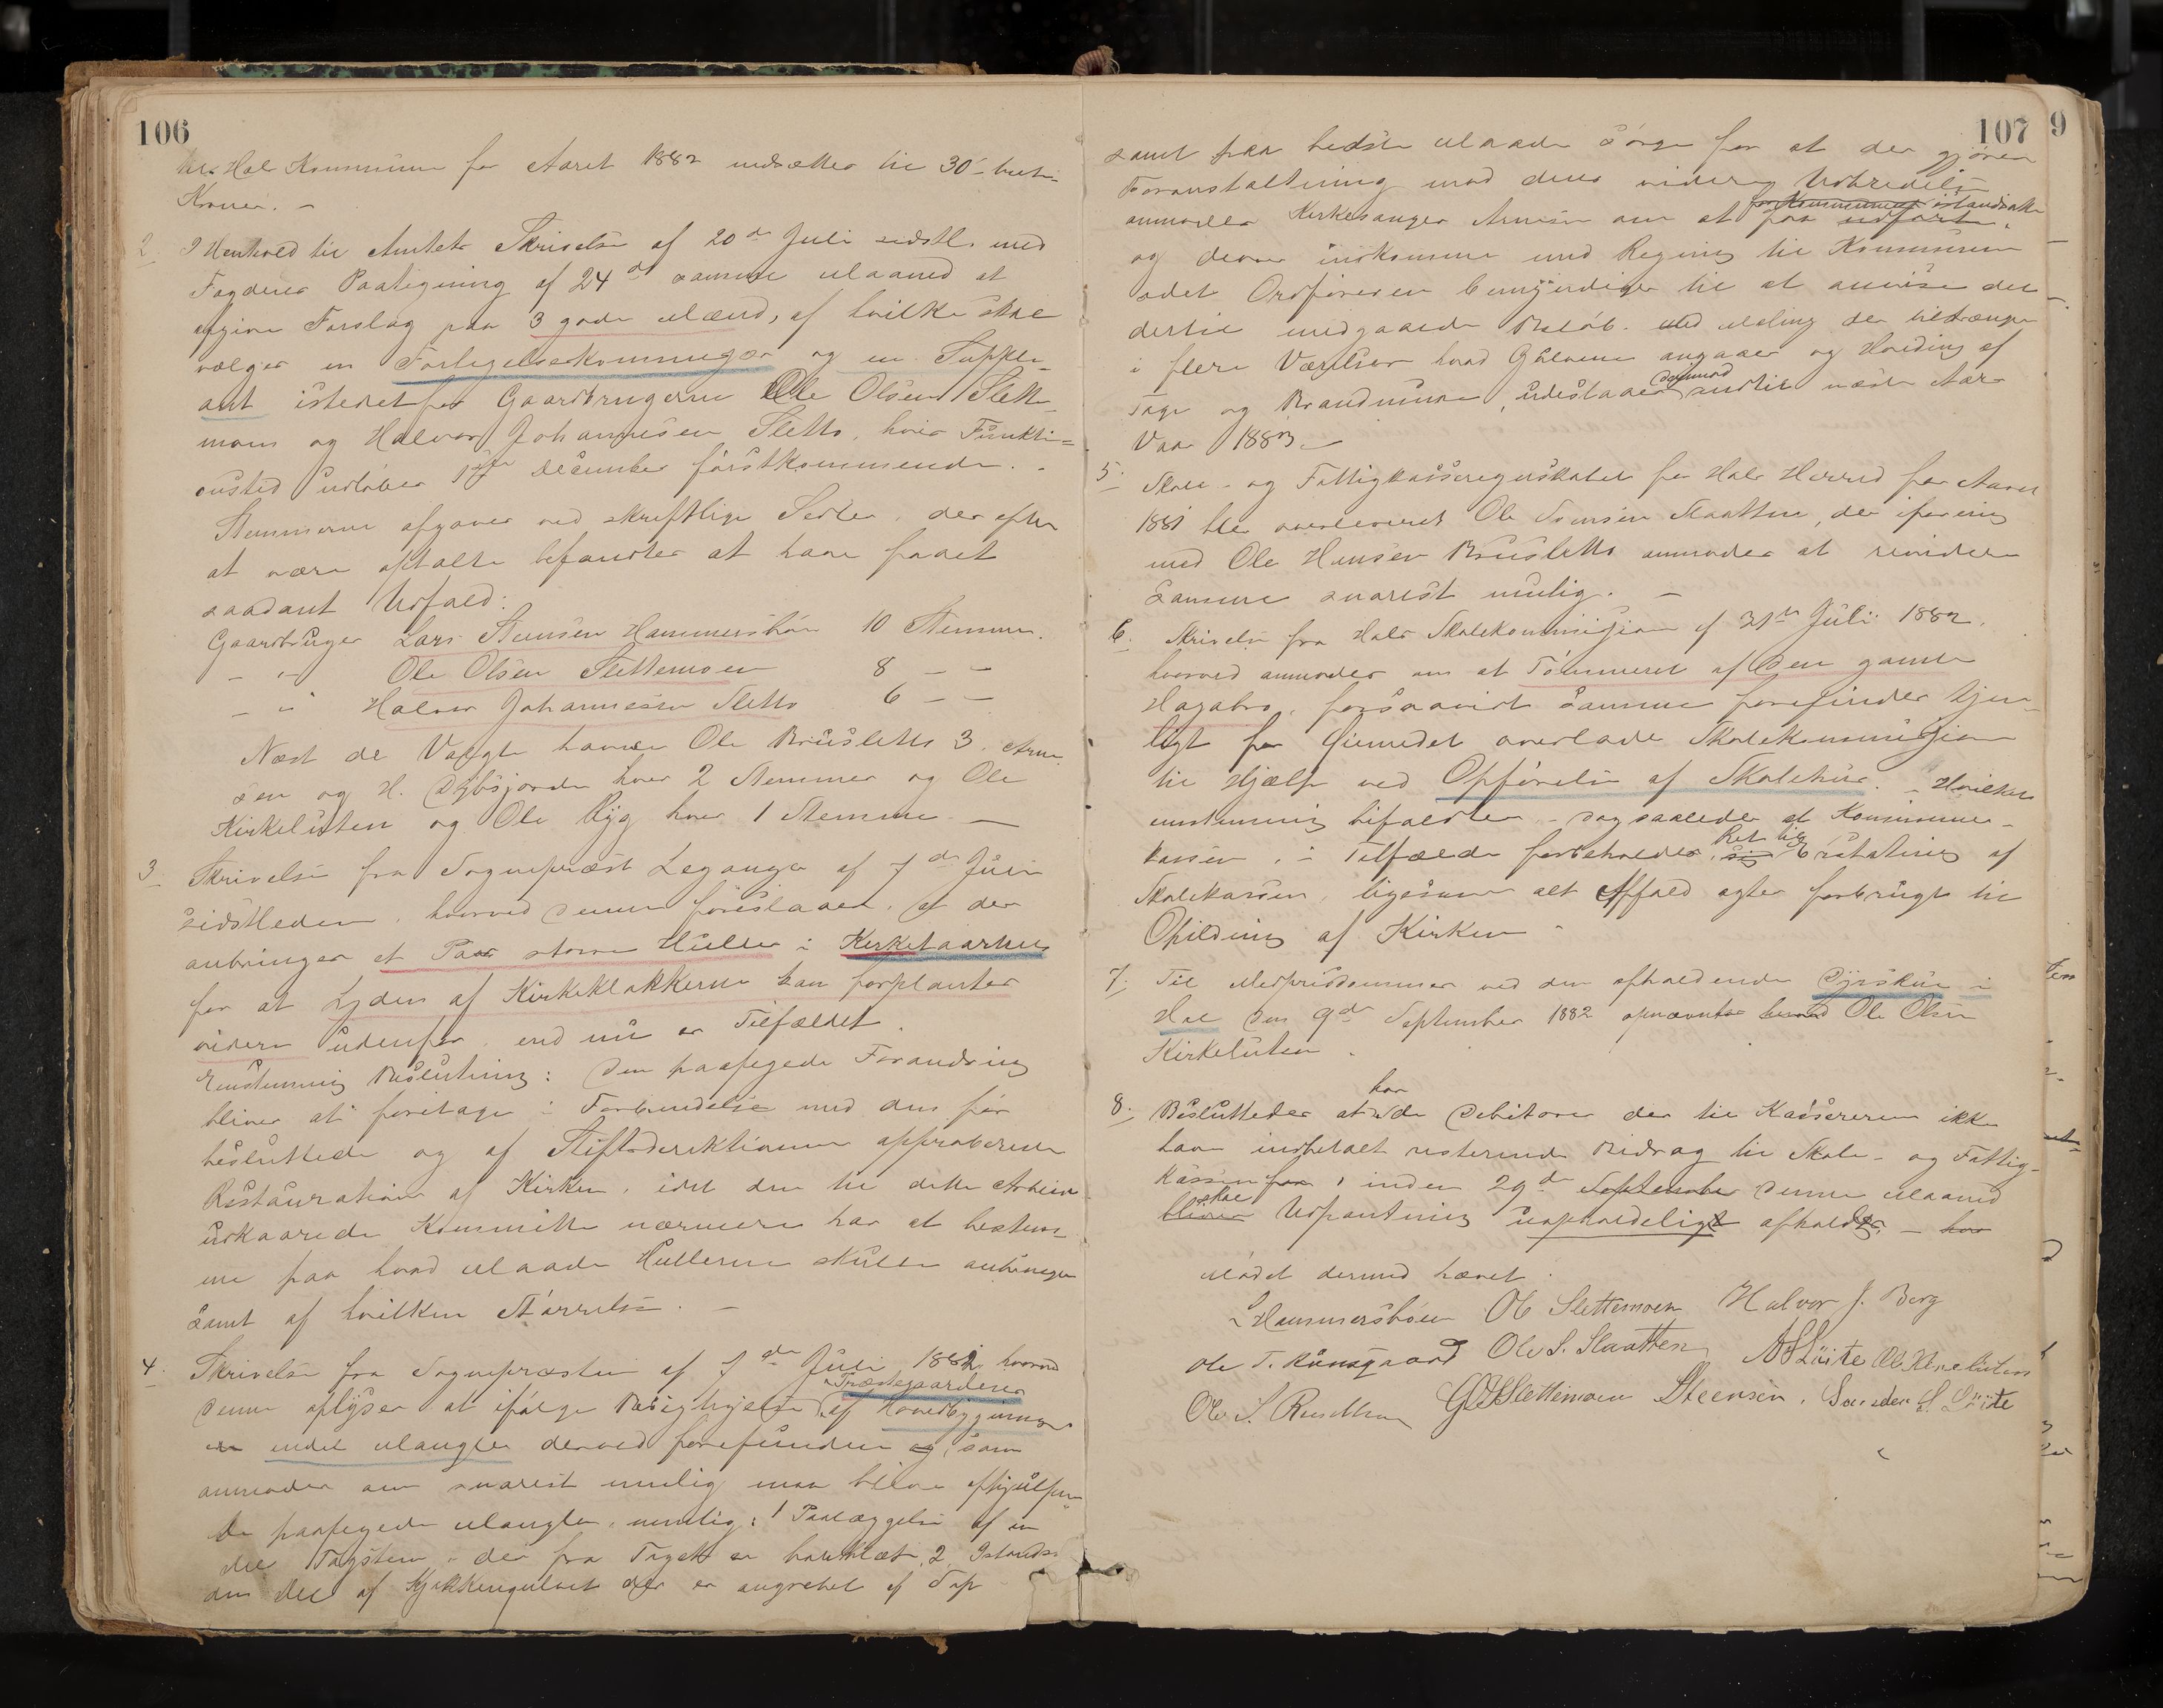 106
Hols Kommune for Aaret 1882 nedsættes til 30 - treti
Kroner. -
2 I Henhold til Amtets Skrivelse af 20de Juli sidstl. med
Fogdens Paategning af 24de samme Maaned at
afgive Forslag paa 3 gode Mænd, af hvilke skal
vælges en Forligelseskommissær og en Supple-
ant istedetfor Gaardbrugerne Ole Olsen Slette-
moen og Halvor Johannesen Sletto, hvis Funkti-
onstid udløber 1ste December førstkommende. -
Stemmerne afgaves ved skriftlige Sedler, der efter
at være optalte befandtes at have faaet
saadant Udfald:
Gaardbruger Lars Steensen Hammersbøen 10 Stemmer.
- " - Ole Olsen Slettemoen 8 - -
- " Halvor Johannesen Sletto 6 - -
Næst de Valgte havde Ole Brusletto 3, Arne
sen og H. Dybsjorde hver 2 Stemmer og Ole
Kirkeluten og Ole Ryg hver 1 Stemme -
3 Skrivelse fra Sognepræst Leganger af 7de Juli
sidstleden, hvorved denne foreslaaer, at der
anbringes et Par store Huller i Kirketaarnet
for at Lyden af Kirkeklokkerne kan forplantes
videre udenfor, end nu er Tilfældet.
Enstemmig Beslutning: Den paapegede Forandring
bliver at foretage i Forbindelse med den før
besluttede og af Stiftsdirektionen approberede
Restauration af Kirken, idet den til dette Arbeide
udkaarede Kommitte nærmere har at bestem-
me paa hvad Maade Hullerne skulle anbringes
samt af hvilken Størrelse. -
4. Skrivelse fra Sognepræsten af 7de Juli 1882 hvorved
Præstegaardens
denne oplyser at ifølge Besigtigelse af Hovedbygningen
er endel Mangler derved forefunden og, som
anmodes om snarest mulig maa blive afhjulpen
de paapegede Mangler, nemlig: 1 Paalæggelse af en
del Tagsten - der fra Taget er bortblæst, 2, Istands
den del af Kjøkkengulvet der er angrebet af Sop
107
9
samt paa bedste Maade sørge for at der gjøres
Foranstaltning mod dens videre Udbredelse
for Kommunens istandsatte
anmodes Kirkesanger Arnesen om at faa udført.
og derom indkomme med Regning til Kommunen
idet Ordføreren bemyndiges til at anvise det
dertil medgaaede Beløb. Med Maling der tiltrænges
i flere Værelser hvad Gulvene angaaer og Hvidting af
dermed
Tage og Brandmure, udestaaes indtil næste Aars
Vaar 1883. -
5. Skole - og Fattigkasseregnskabet for Hols Herred for Aaret
1881 blev overleveret Ole Svensen Slaatten, der iforening
med Ole Hansen Brusletto anmodes at revidere
samme snarest mulig. -
6. Skrivelse fra Hols Skolekommission af 31te Juli 1882.
hvorved anmodes om at Tømmeret af den gamle
Hagabro, forsaavidt samme forefindes tjen-
ligt for Øiemedet overlades Skolekommissionen
til Hjælp ved Opførelse af Skolehus. - Hvilken
enstemmig bifaldtes - dog saaledes at Kommune-
Ret til
kassen, i Tilfælde forbeholdes sig Erstatning af
Skolekassen, ligesom alt Affald agtes forbrugt til
Ophildning af Kirken -
7. Til Medprisdommer ved den afholdende Dyrskue i
Hol den 9de September 1882 opnævntes herved Ole Olsen
Kirkeluten.
8. har
Besluttedes at de Debitorer der til Kassereren ikke
have indbetalt resterende Bidrag til Skole - og Fattig-
kassen for, inden 29de September denne Maaned
skal
bliver Udpantning uopholdeligt afholdes, - hvor
Mødet dermed hævet.
L Hammersbøen Ole Slettemoen Halvor J. Berg
Ole T. Kunsgaard Ole S. Slaatten A S Luite Ole Kirkeluten
Ole S. G O Slettemoen Steensen, S. Luite